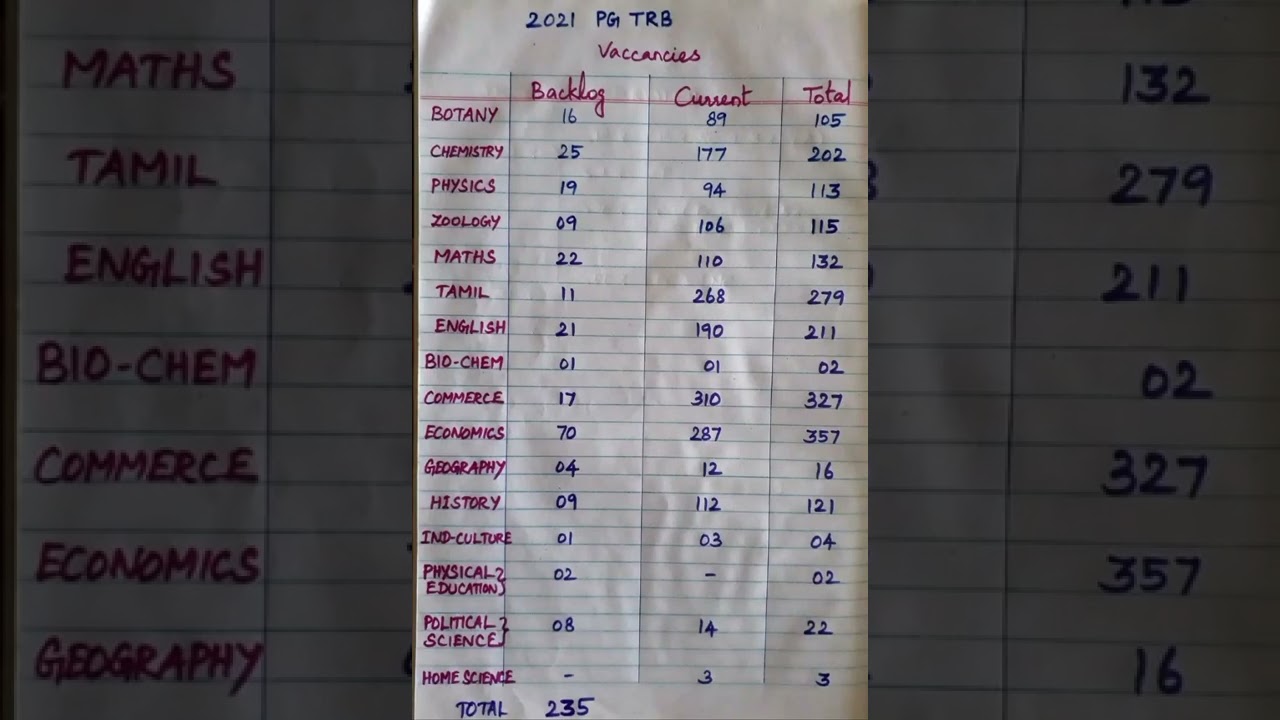 2021 PG TRB
Vaccancies
Backlog Current Total
BOTANY 16 89 105
CHEMISTRY 25 177 202
PHYSICS 19 94 113
ZOOLOGY 09 106 115
MATHS 22 110 132
TAMIL 11 268 279
ENGLISH 21 190 211
BIO-CHEM 01 01 02
COMMERCE 17 310 327
ECONOMICS 70 287 357
GEOGRAPHY 04 12 16
HISTORY 09 112 121
IND-CULTURE 01 03 04
PHYSICAL 02 - 02
EDUCATION
POLITICAL 08 14 22
SCIENCE
HOME SCIENCE - 3 3
TOTAL 235
MATHS 132
TAMIL 279
ENGLISH 211
BIO-CHEM 02
COMMERCE 327
ECONOMICS 357
GEOGRAPHY 16